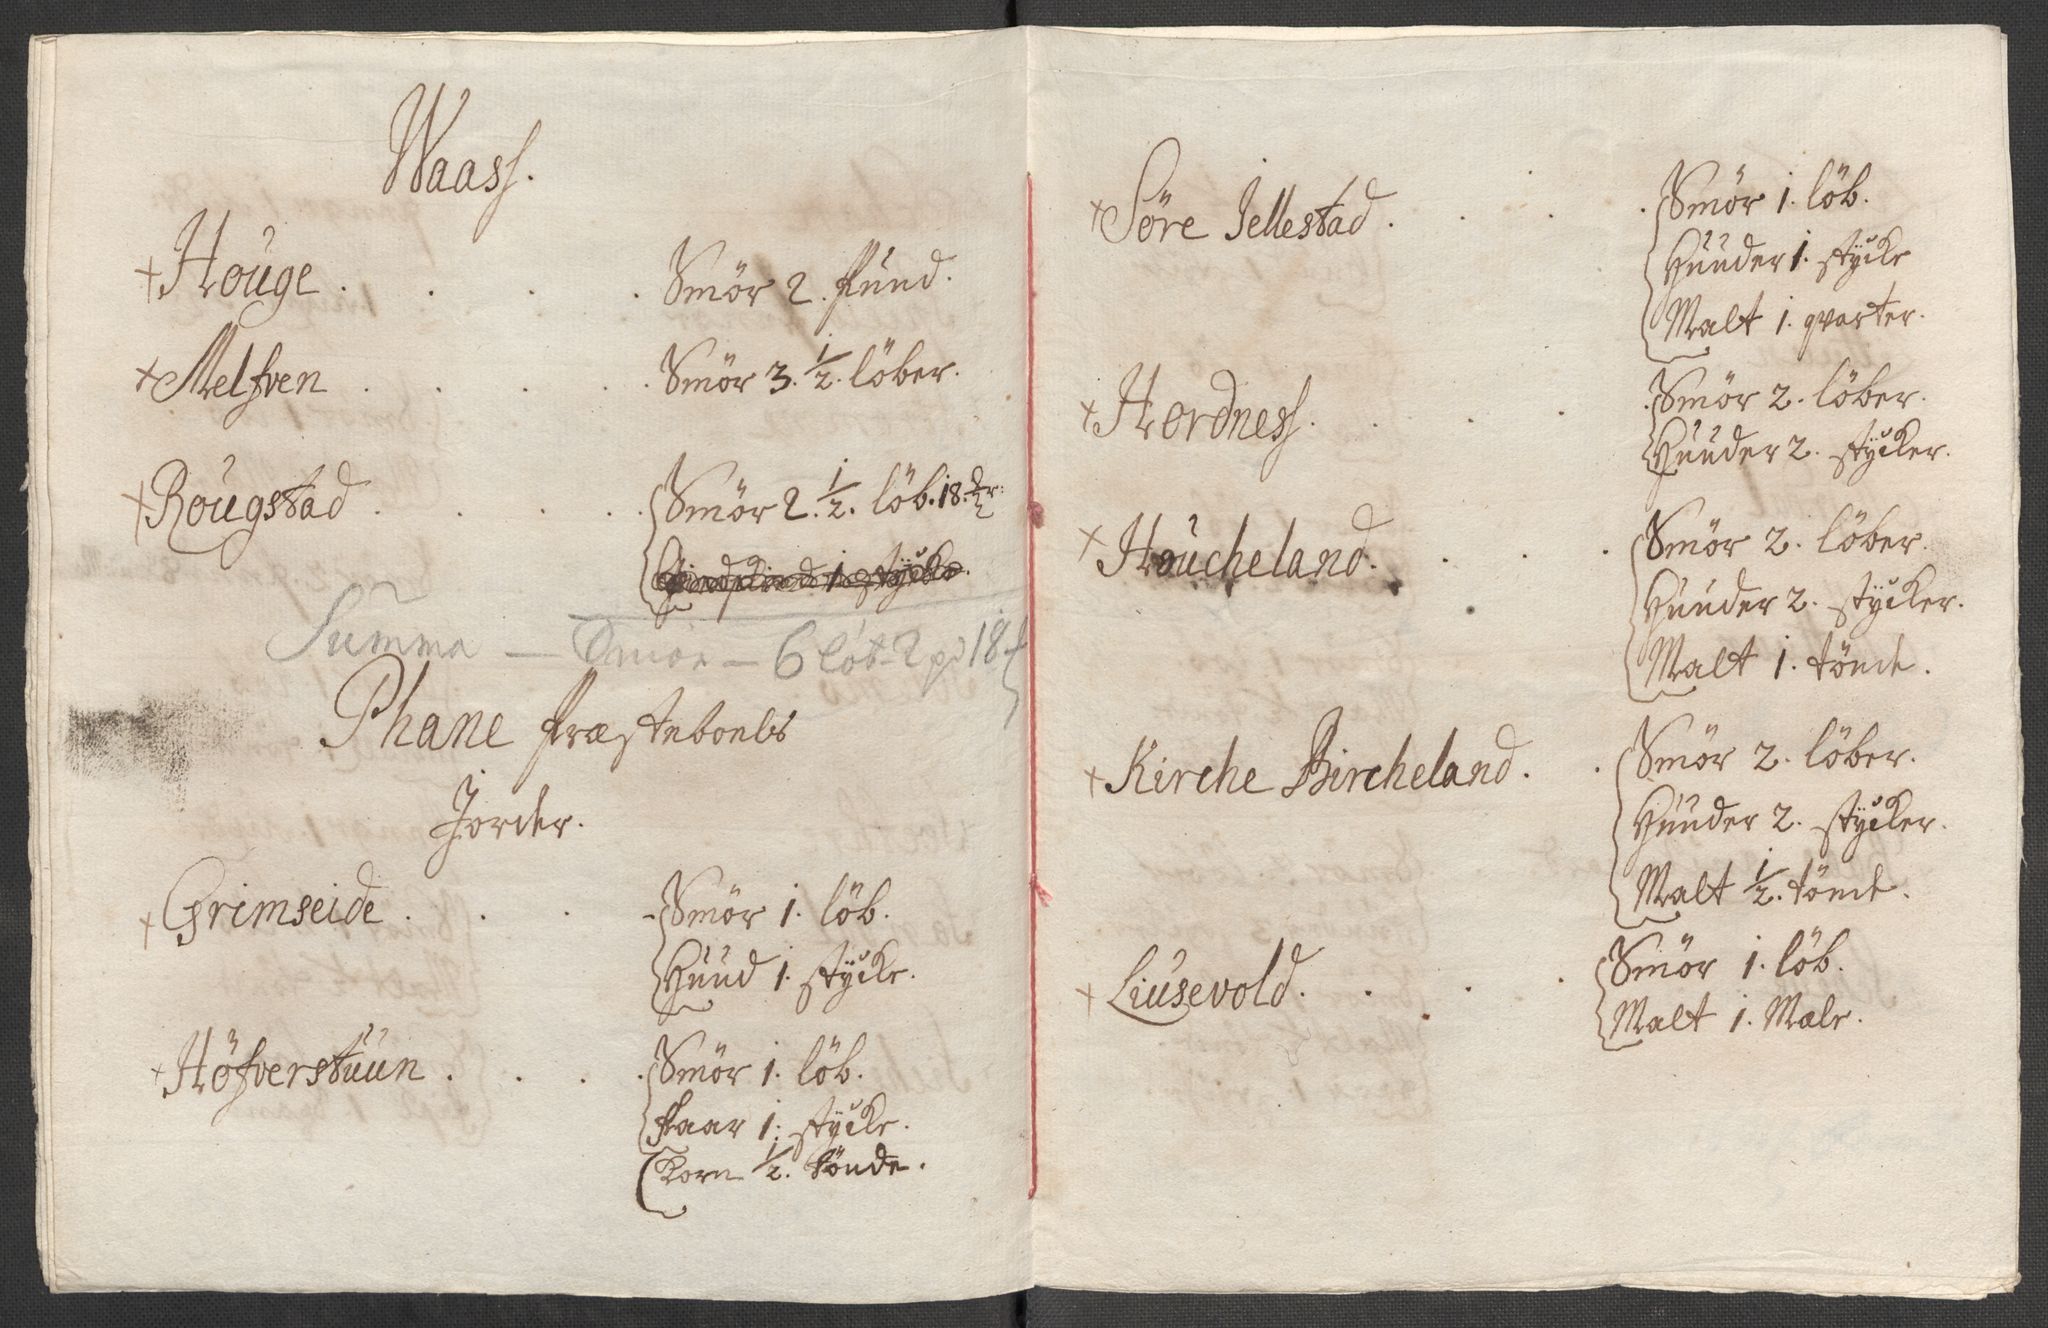 Waass.
+ Houge . . . . Smör 2. Pund.
+ Melfven . . . . Smör 3. 1/2. löber.
+ Rougstad . . . . Smör 2. 1/2. löb. 18.
1 stycke.
Summa — Smör — 6 löb - 2 pd 18
Phane Præsteboels
Jorder.
+ Grimseide . . . Smör 1. löb.
Huud 1. stycke.
+ Höfverstuun . . . . Smör 1. löb.
Faar 1. stycke.
Korn 1/2. tönde.
+ Söre Jellestad . . . . Smör 1. löb.
Huuder 1. stycke
Malt 1. qvarter.
+ Hordness . . . . Smör 2. löber.
Huuder 2. stycker.
+ Houcheland . . . . Smör 2. löber.
Huuder 2. stycker.
Malt 1. tönde.
+ Kirche Bircheland . . Smör 2. löber.
Huuder 2. stycker.
Malt 1/2. tönde.
+ Liusevold . . . . Smör 1. löb.
Malt 1. Male.